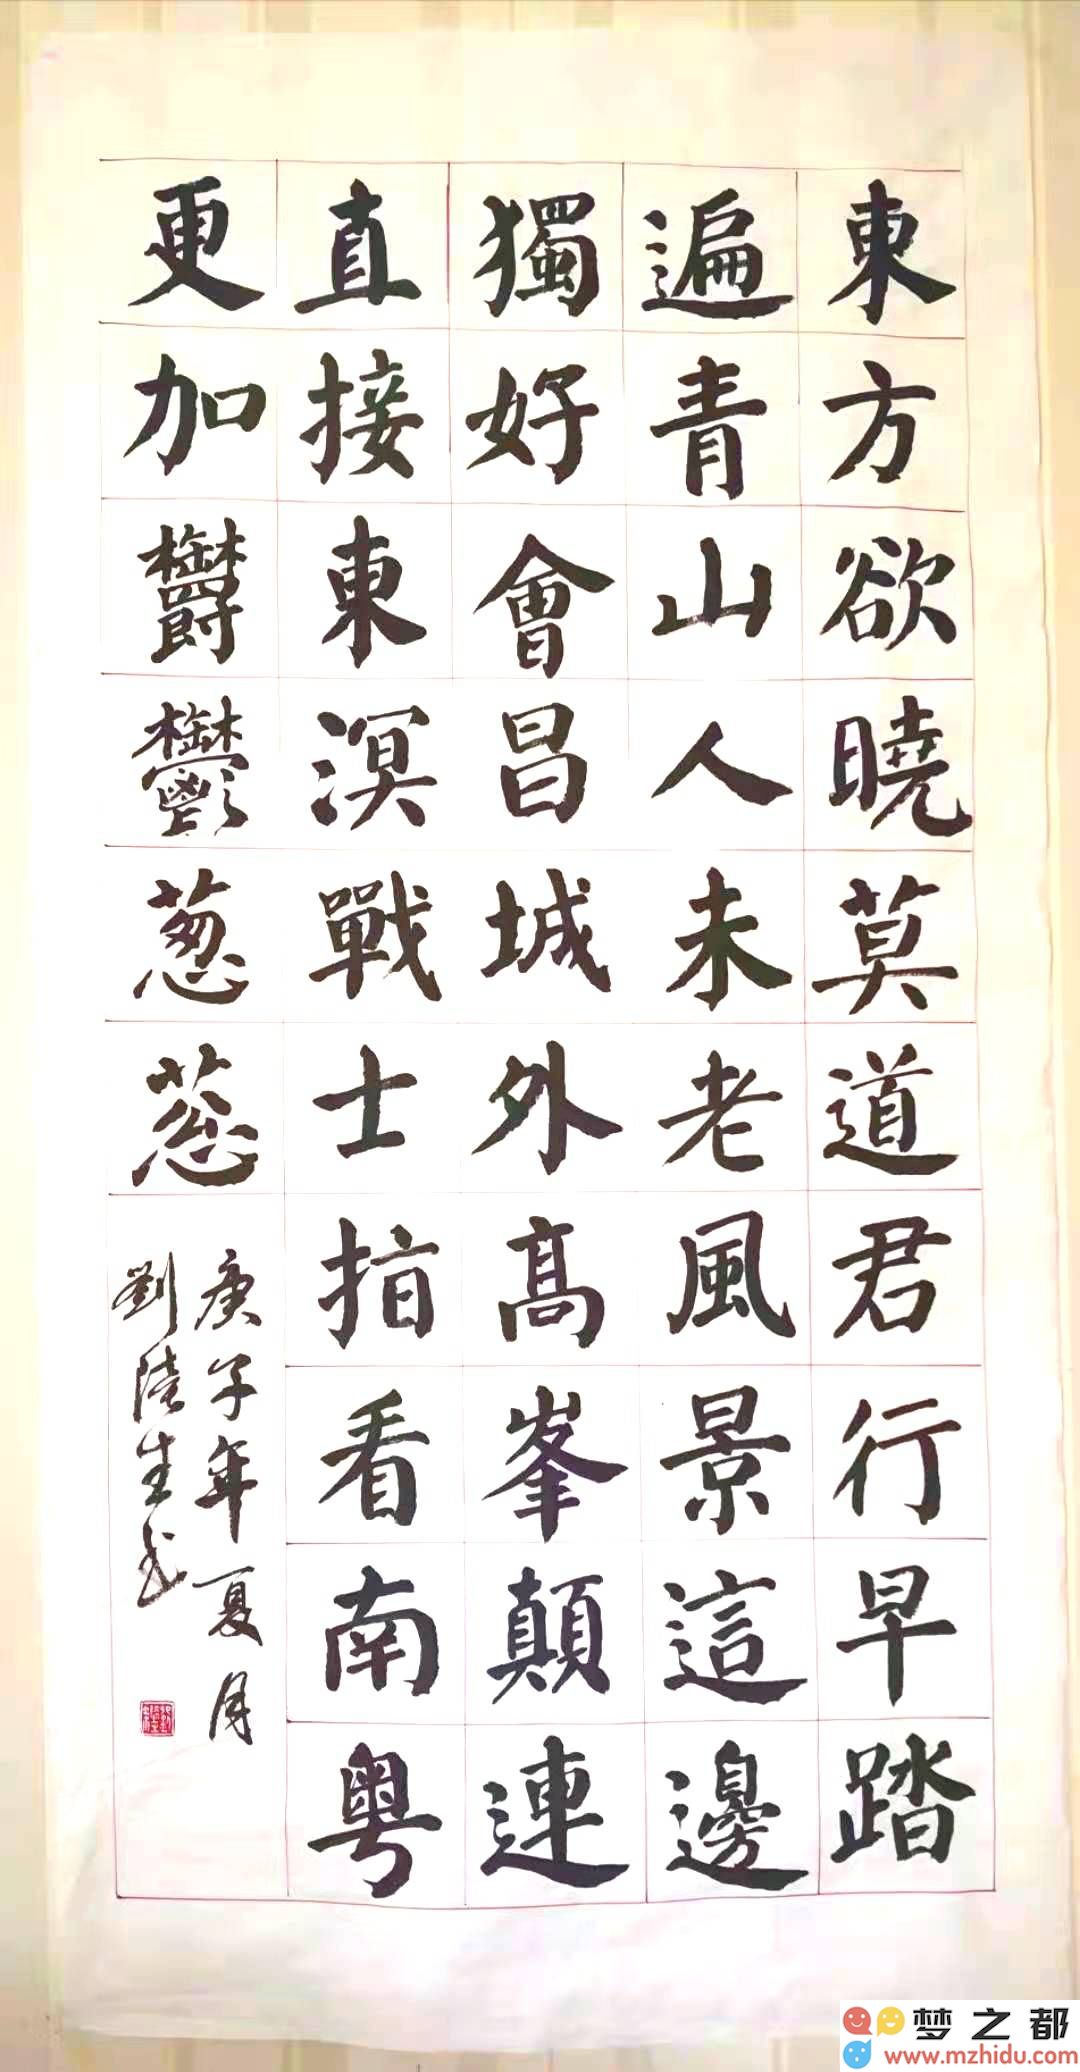 東方欲曉莫道君行早踏
遍青山人未老風景這邊
獨好會昌城外高峯顛連
直接東溟戰士指看南粤
更加鬱鬱葱蔥
庚子年夏月
劉陸生书
梦之都
www.mzhidu.com